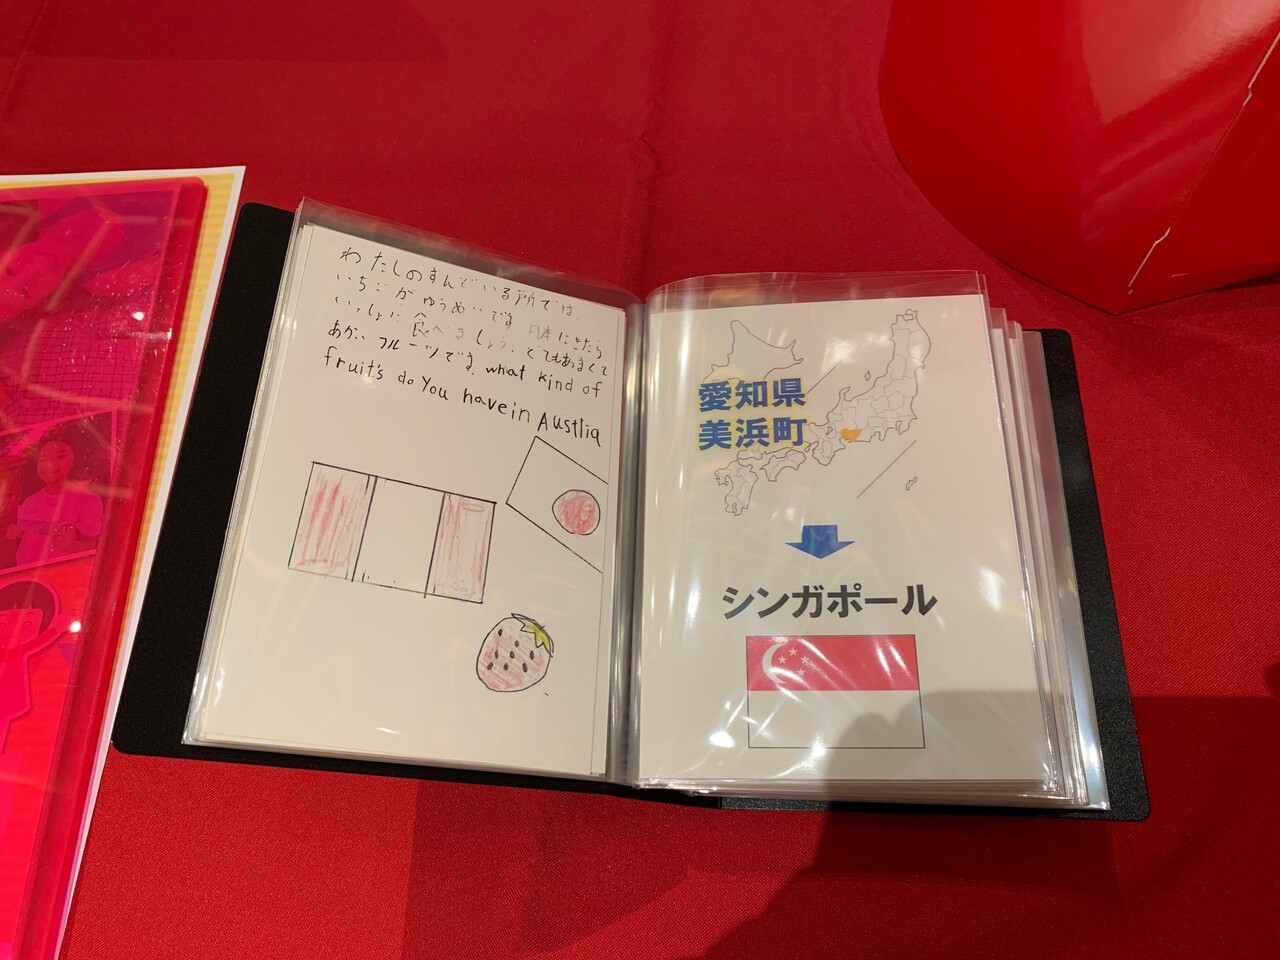 わたしのすんでいる所では、
いちごがゆうめいです。日本にきたら
いっしょに食べましょう。とてもあまくて
あかいフルーツです。what kind of
fruit's do You have in Austlia
愛知県
美浜町
シンガポール